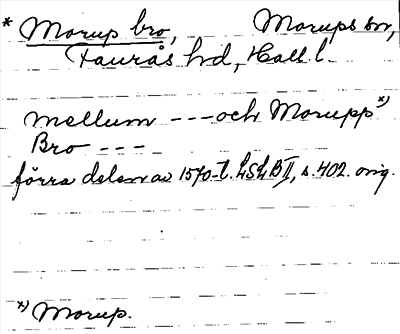 * Morup bro, Morups sn,
Faurås hd, Hall. l.
mellum --- och Morupp x)
Bro ---
förra delen av 1570-t. LSLB II, s. 402. orig.
x) Morup.